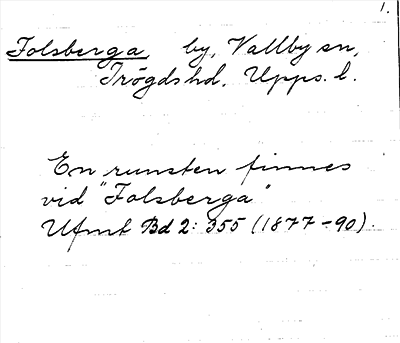 1.
Folsberga, by, Vallby sn,
Trögds hd, Upps. l.
En runsten finnes
vid "Folsberga"
Ufmt Bd 2: 355 (1877-90).